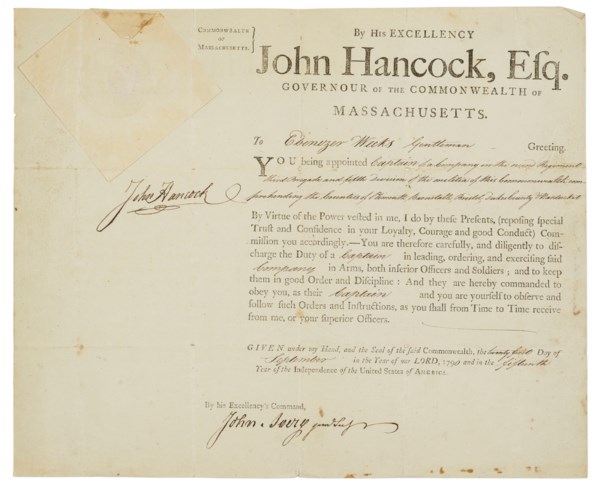 COMMONWEALTH
OF
MASSACHUSETTS.
By His EXCELLENCY
John Hancock, Eſq.
GOVERNOUR OF THE COMMONWEALTH OF
MASSACHUSETTS.
To Ebenezer Weeks Gentleman Greeting.
YOU being appointed Captain of a Company in the Regiment
third Brigade and fifth division of the militia of this Commonwealth com-
prehending the Counties of Plymouth, Barnstable, Bristol, Dukes County & Nantucket
John Hancock
By Virtue of the Power veſted in me, I do by theſe Preſents, (repoſing ſpecial
Truſt and Confidence in your Loyalty, Courage and good Conduct) Com-
miſſion you accordingly.—You are therefore carefully, and diligently to diſ-
charge the Duty of a Captain in leading, ordering, and exerciſing ſaid
Company in Arms, both inferior Officers and Soldiers; and to keep
them in good Order and Diſcipline: And they are hereby commanded to
obey you, as their Captain and you are yourſelf to obſerve and
follow ſuch Orders and Inſtructions, as you ſhall from Time to Time receive
from me, or your ſuperior Officers.
GIVEN under my Hand, and the Seal of the ſaid Commonwealth, the twenty first Day of
September in the Year of our LORD, 1790 and in the fifteenth
Year of the Independence of the United States of AMERICA.
By his Excellency's Command,
John Avery jun Sec'y